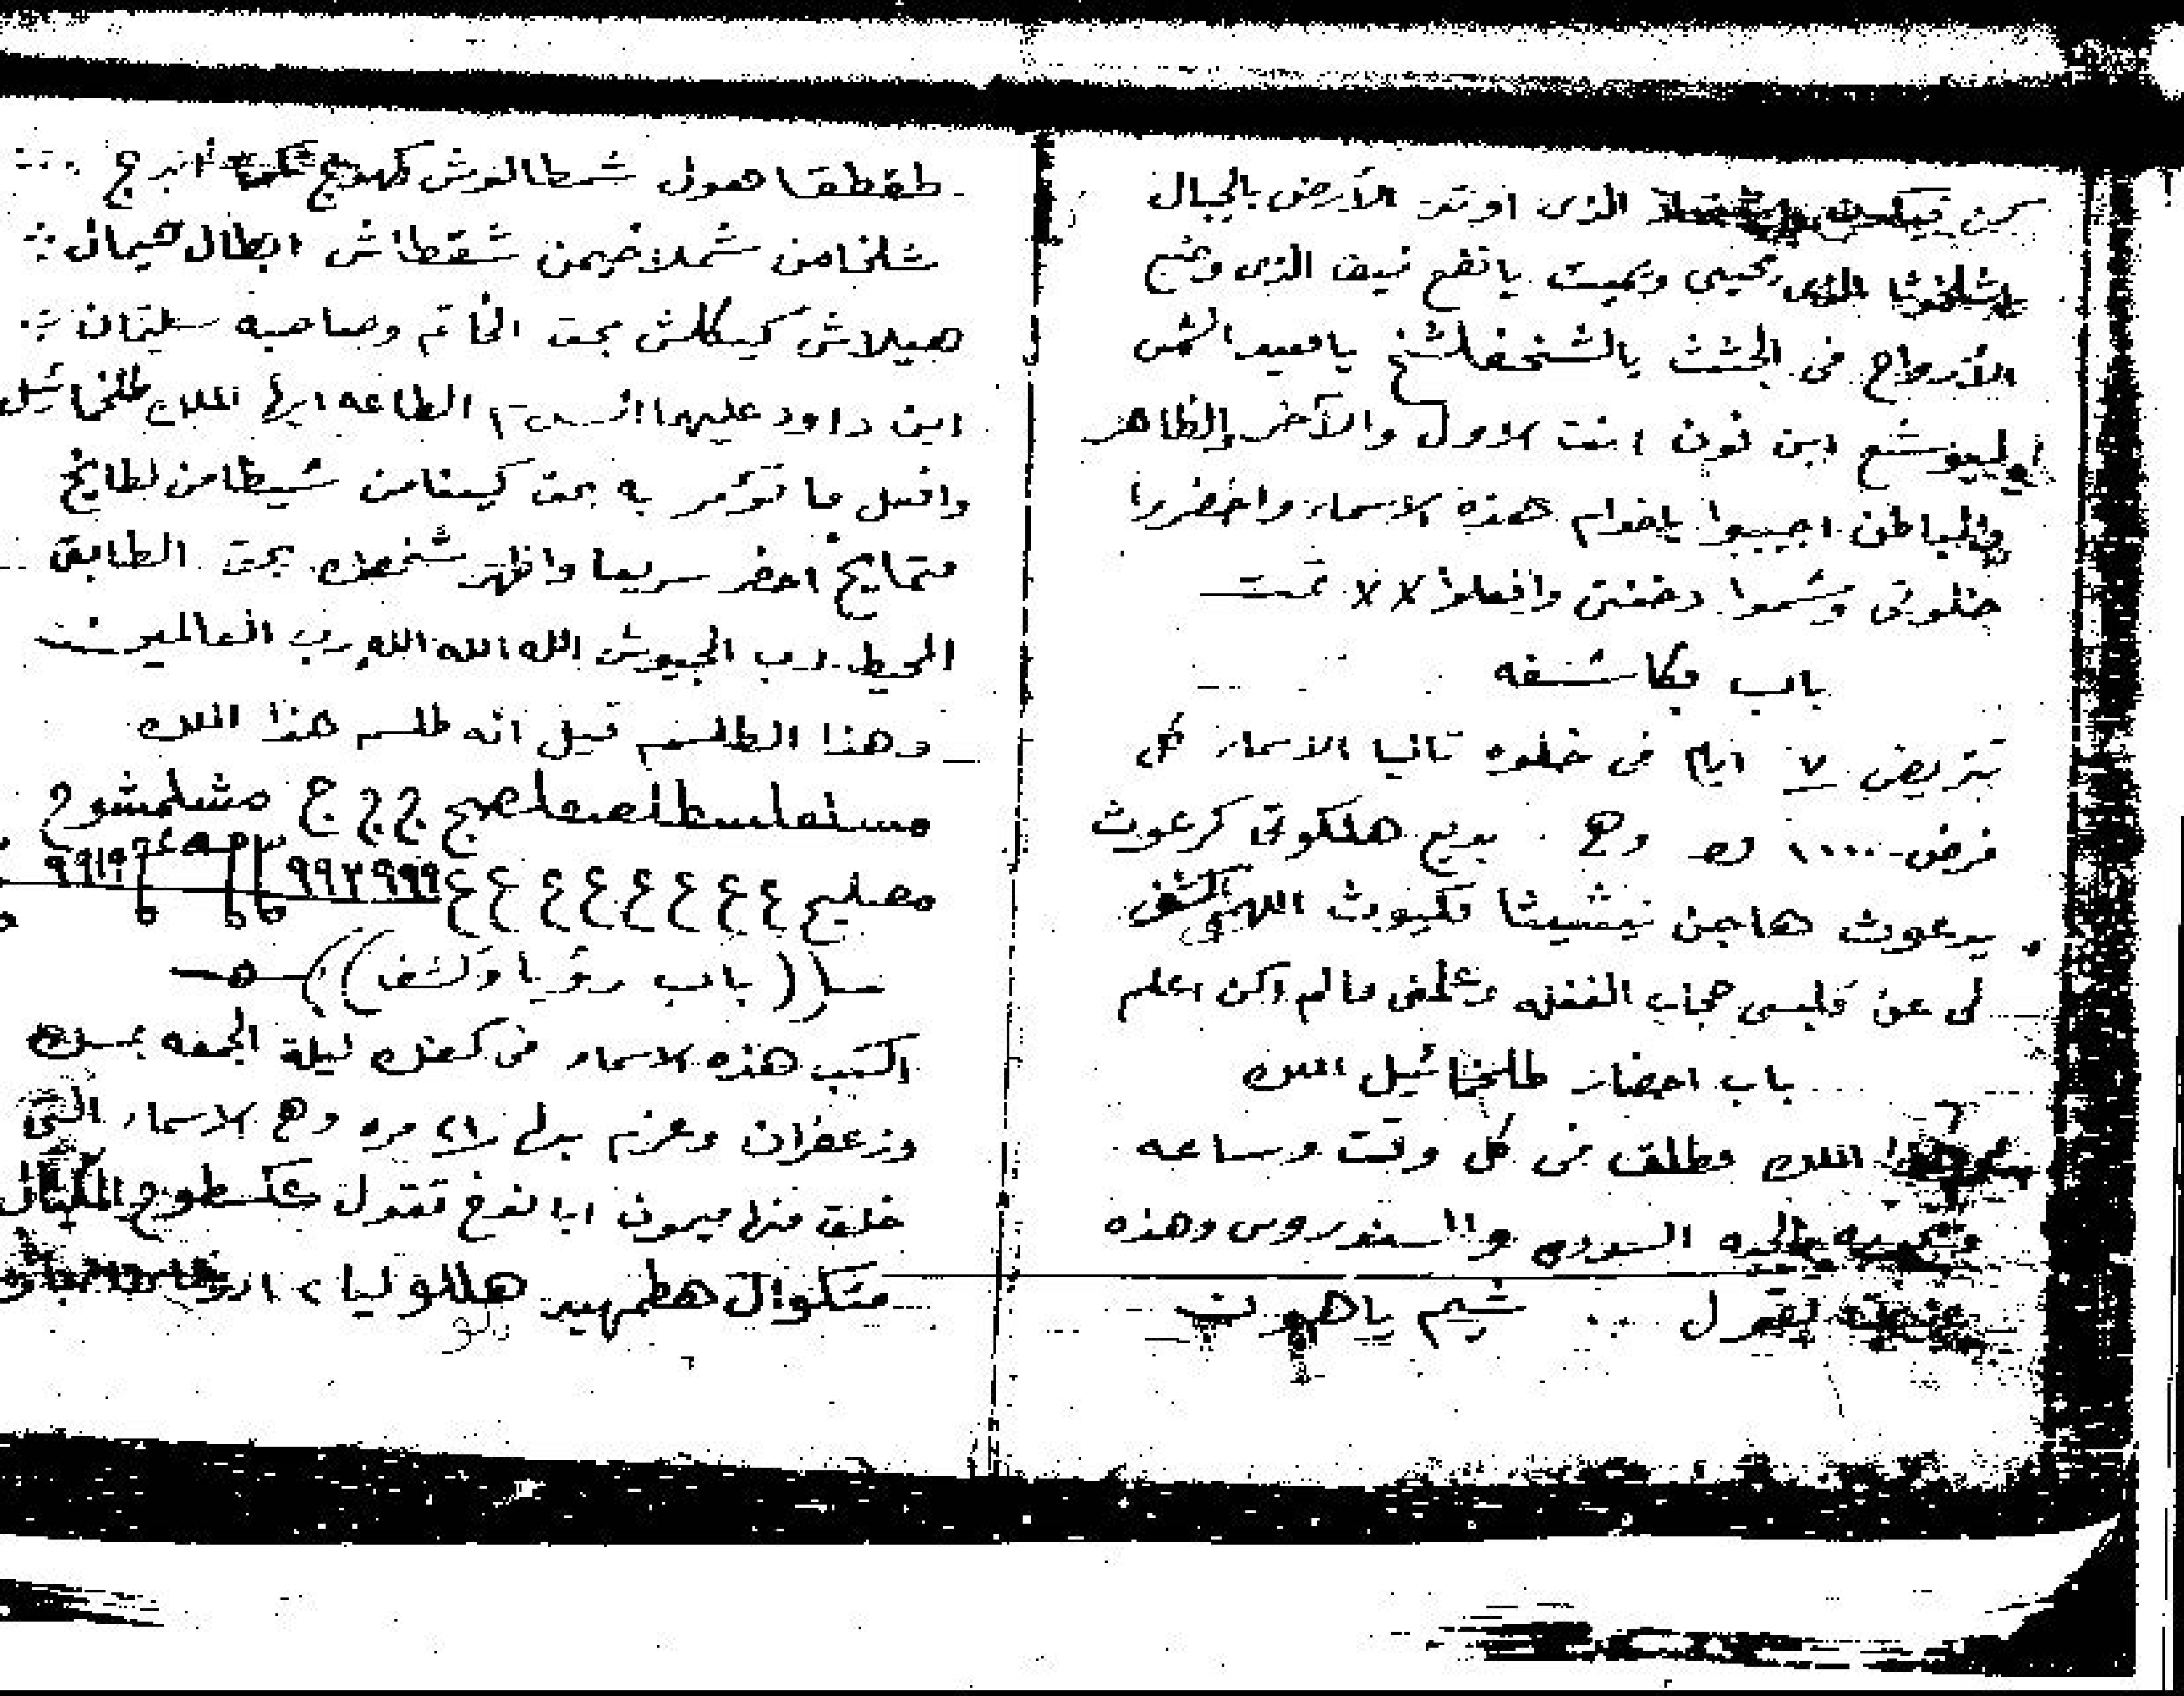 الذى اوتد الأرض بالجبال
يحيى ويميت يا نفخ نيف الذى وضع
الأرواح فى الجثث يالشخفلشخ يامعيد الشمس
ليوشع ابن نون انت الاول والآخر والظاهر
والباطن اجيبوا ياخدام هذه الاسماء واحضروا
خلوتى وشموا دخنتى وافعلوا ×× تمت
باب مكاشفه
تتريض ٧ ايام فى خلوه تاليا الاسماء كل
فرض ١٠٠٠ وهى بديع هلكوتى كرعوث
يرعوث هاجن نيشيثا مكيوث اللهم اكشف
لى عن قلبى حجاب الغفله وعلمنى مالم اكن اعلم
باب احضار طلخيائيل الملك
هذا الملك مطلق فى كل وقت وساعه
السودى والسندروس وهذه
يقول .. شيم ياهموت
طقطقا هول شمطالوش كهوج
شلخامن شملاخيمن شقطاش ابطال هيمال
هيلاش كيكلش بحق الخاتم وصاحبه سليمان
ابن داود عليهما السلام الطاعه ايها الملك طلخيائيل
وافعل ما تؤمر به بحق كيفامن شيطامن لطايخ
متمايخ احضر سريعا واظهر شخصك بحق الطابق
المحيط رب الجيوش الله الله الله رب العالمين
وهذا الطلسم قيل انه طلسم هذا الملك
ج ج ج مشلمشوح
مصليع ع ع ع ع ع ع ع ع ٩٩٣٩٩٩
((باب رؤيا وكشف))
اكتب هذه الاسماء فى كفك ليلة الجمعه بمسك
وزعفران وعزم بها ٢١ مره وهى الاسماء التى
خلق منها ميمون ابا نوخ تقول عكسطوج
متكوال هطمهيد هللوليا ٢